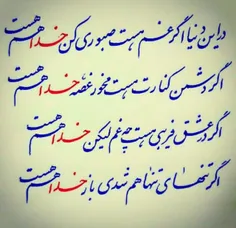 در این دنیا اگر غم هست صبوری کن خدا هم هست
اگر دشمن کنارت هست مخور غصه خدا هم هست
اگر در عشق فریبی هست چه غم لیکن خدا هم هست
اگر تنهای تنها هم شدی باز خدا هم هست